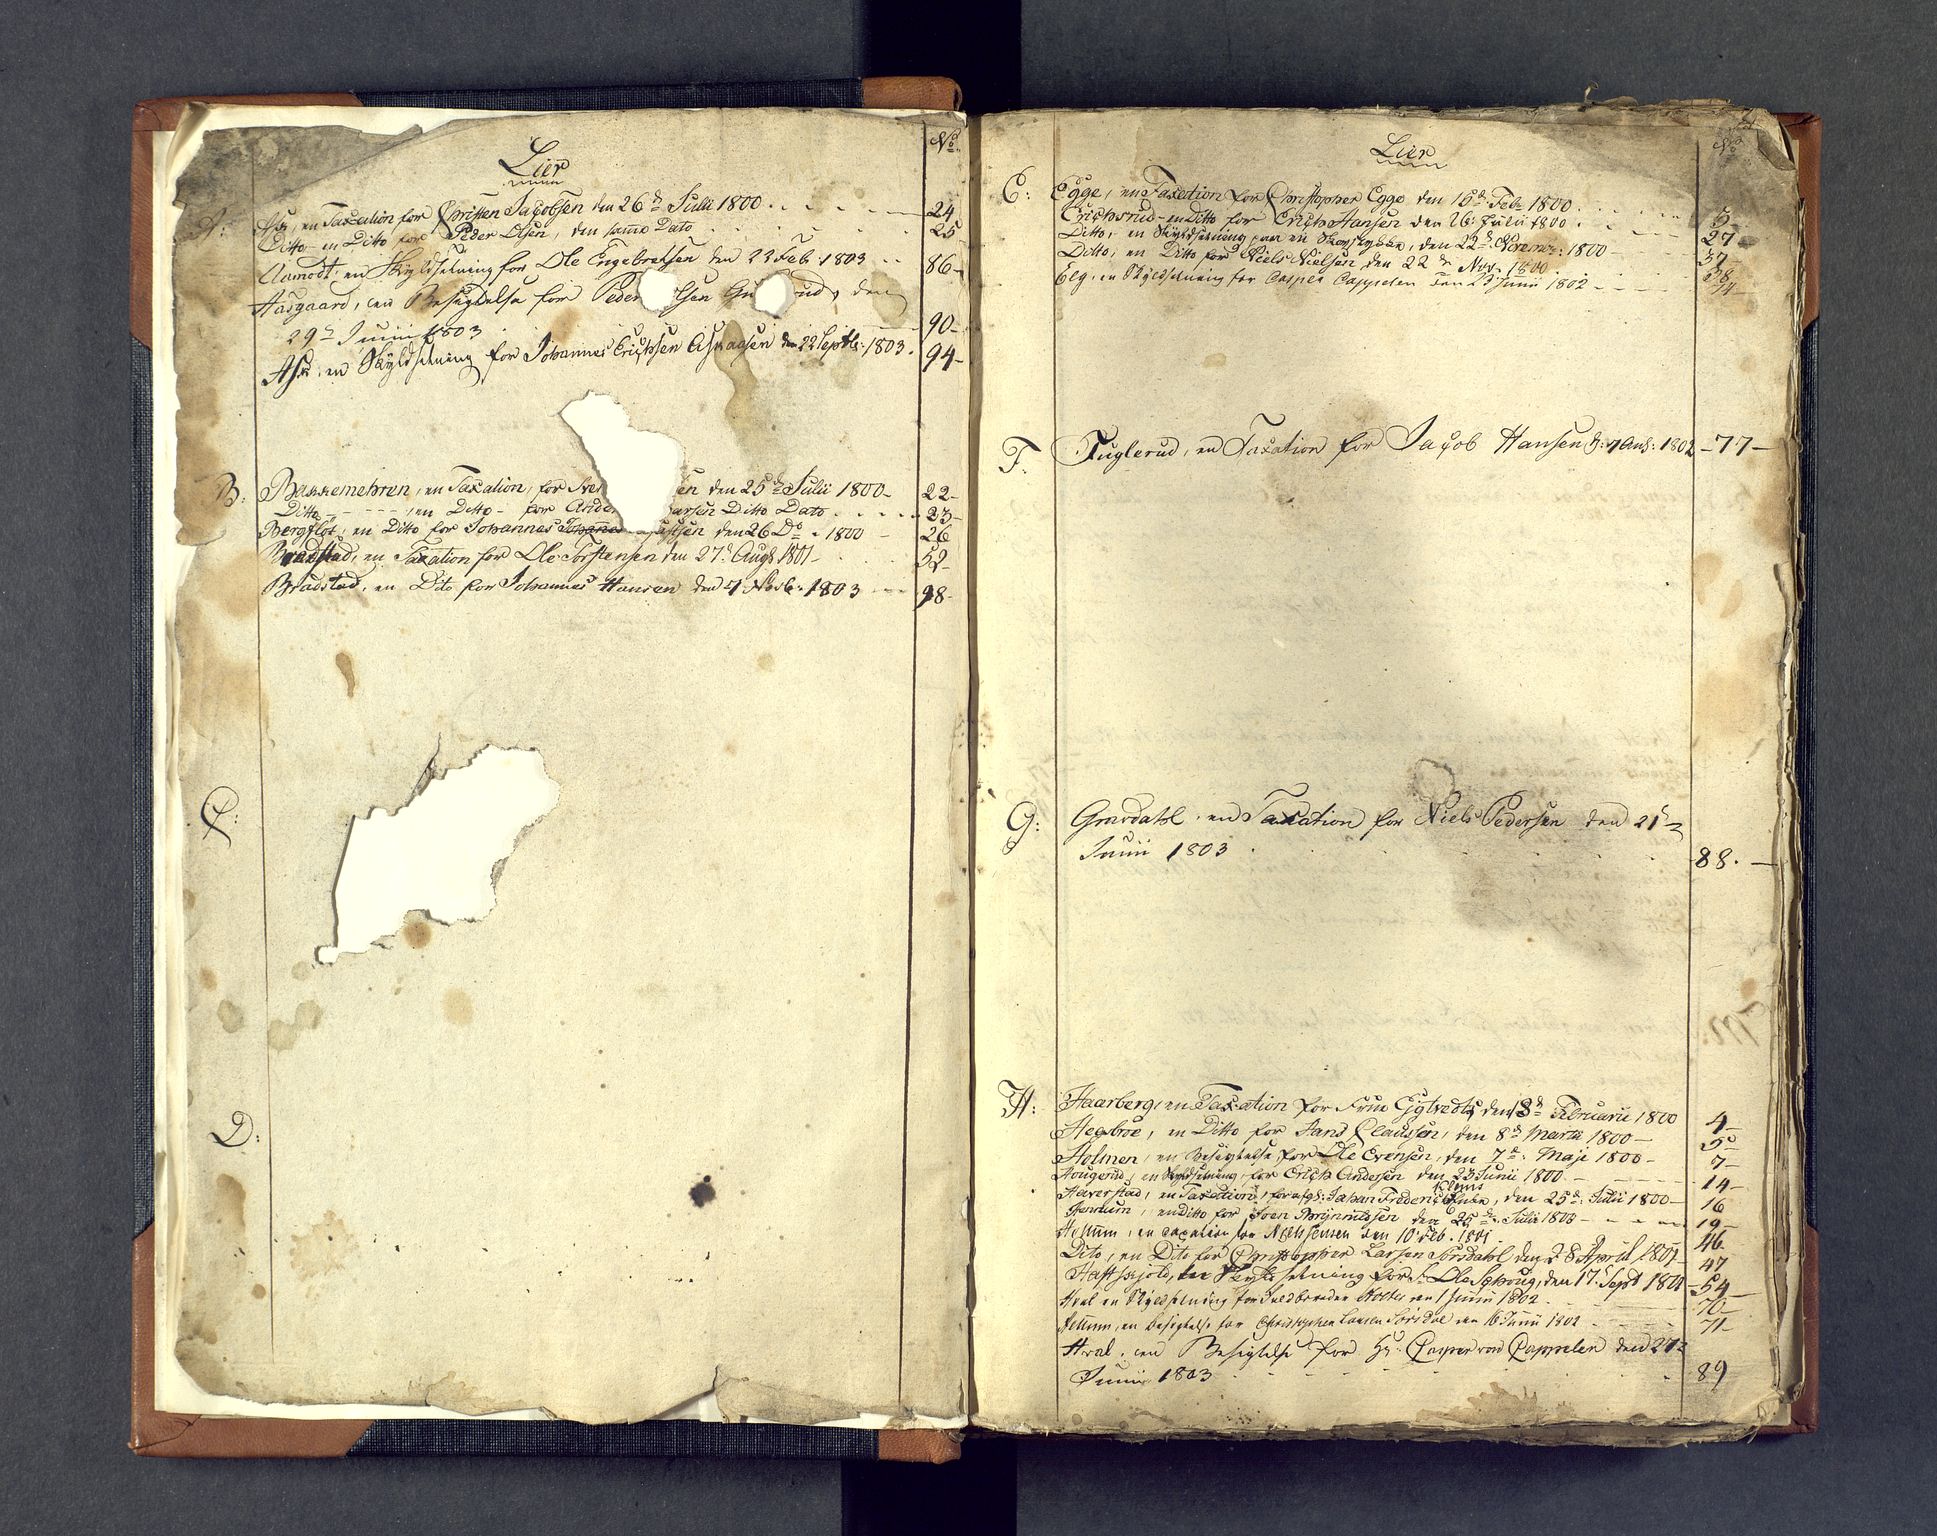 Lier
No
A: Ask, en Taxation for Christen Jacobsen den 26de Julii 1800 24
Ditto en Ditto for Peder Olsen, den samme Dato 25
Aamodt, en Skyldsetning for Ole Engebretsen den 23 Feb. 1803 86
Aasgaard, en Besigtelse for Peder den
29de Junii 1803 90
Ask, en Skyldsetning for Johannes Erichsen den 22 Septbr: 1803. 94
B: Bakkemehren, en Taxation, for den 25de Julii 1800 22
Ditto en Ditto for Ditto Dato 23
Bergflot, en Ditto for Johannes den 26 Do 1800 26
Bradstad, en Taxation for Ole Torstensen den 27de Augs 1801 52
Bradstad, en Dito for Johannes Hansen den 1803 98
C:
D:
Lier
No
E: Egge, en Taxation for Christopher Egge den 15de Feb: 1800 5
Erichsrud en Ditto for Erich Hansen den 26: Julii 1800 27
Ditto, en Skyldsetning paa en den 22de Novembr: 1800 37
Ditto, en Ditto for Niels Nielsen, den 22de Nov. 1800 38
Elg, en Skyldsetning for Casper Cappelen den 23 Junii 1802 74
F: Fuglerud, en Taxation for Jacob Hansen d: 7 Aug: 1802 77
G: Gravdahl, en Taxation for Niels Pedersen den 21de
Junii 1803 88.
H: Haarberg, en Taxation for Frue den 13de Februarii 1800 4
Hegsbroe, en Ditto for Hans Claussen, den 8de Martii 1800 5
Holmen, en Besigtelse for Ole Evensen, den 7de: Maji 1800 7
Hougerud, en Skyldsetning for Erich Andersen den 23 Junii 1800 14
Haverstad, en Taxation, for afg: Johan Frederic Klems den 25de Julii 1800 16
Hennum, en Ditto for Joen Brynnildsen den 25de Julii 1800 19
Hellum, en Taxation for Niels Jensen den 10 Feb. 1801. 46
Dito, en Dito for Christopher Larsen Sørsdahl den 28 April 1801 47
en Skyldsetning for Ole Schoug, den 17 Sept 1801 54
Hval en Skyldsetning for Holter den 1 Junii 1802. 70
Hellum, en Besigtelse for Christopher Larsen Sørsdal den 16 Junii 1802 71
Hval, en Besigtelse for Hr. Casper von Cappelen den 27de
Junii 1803 89